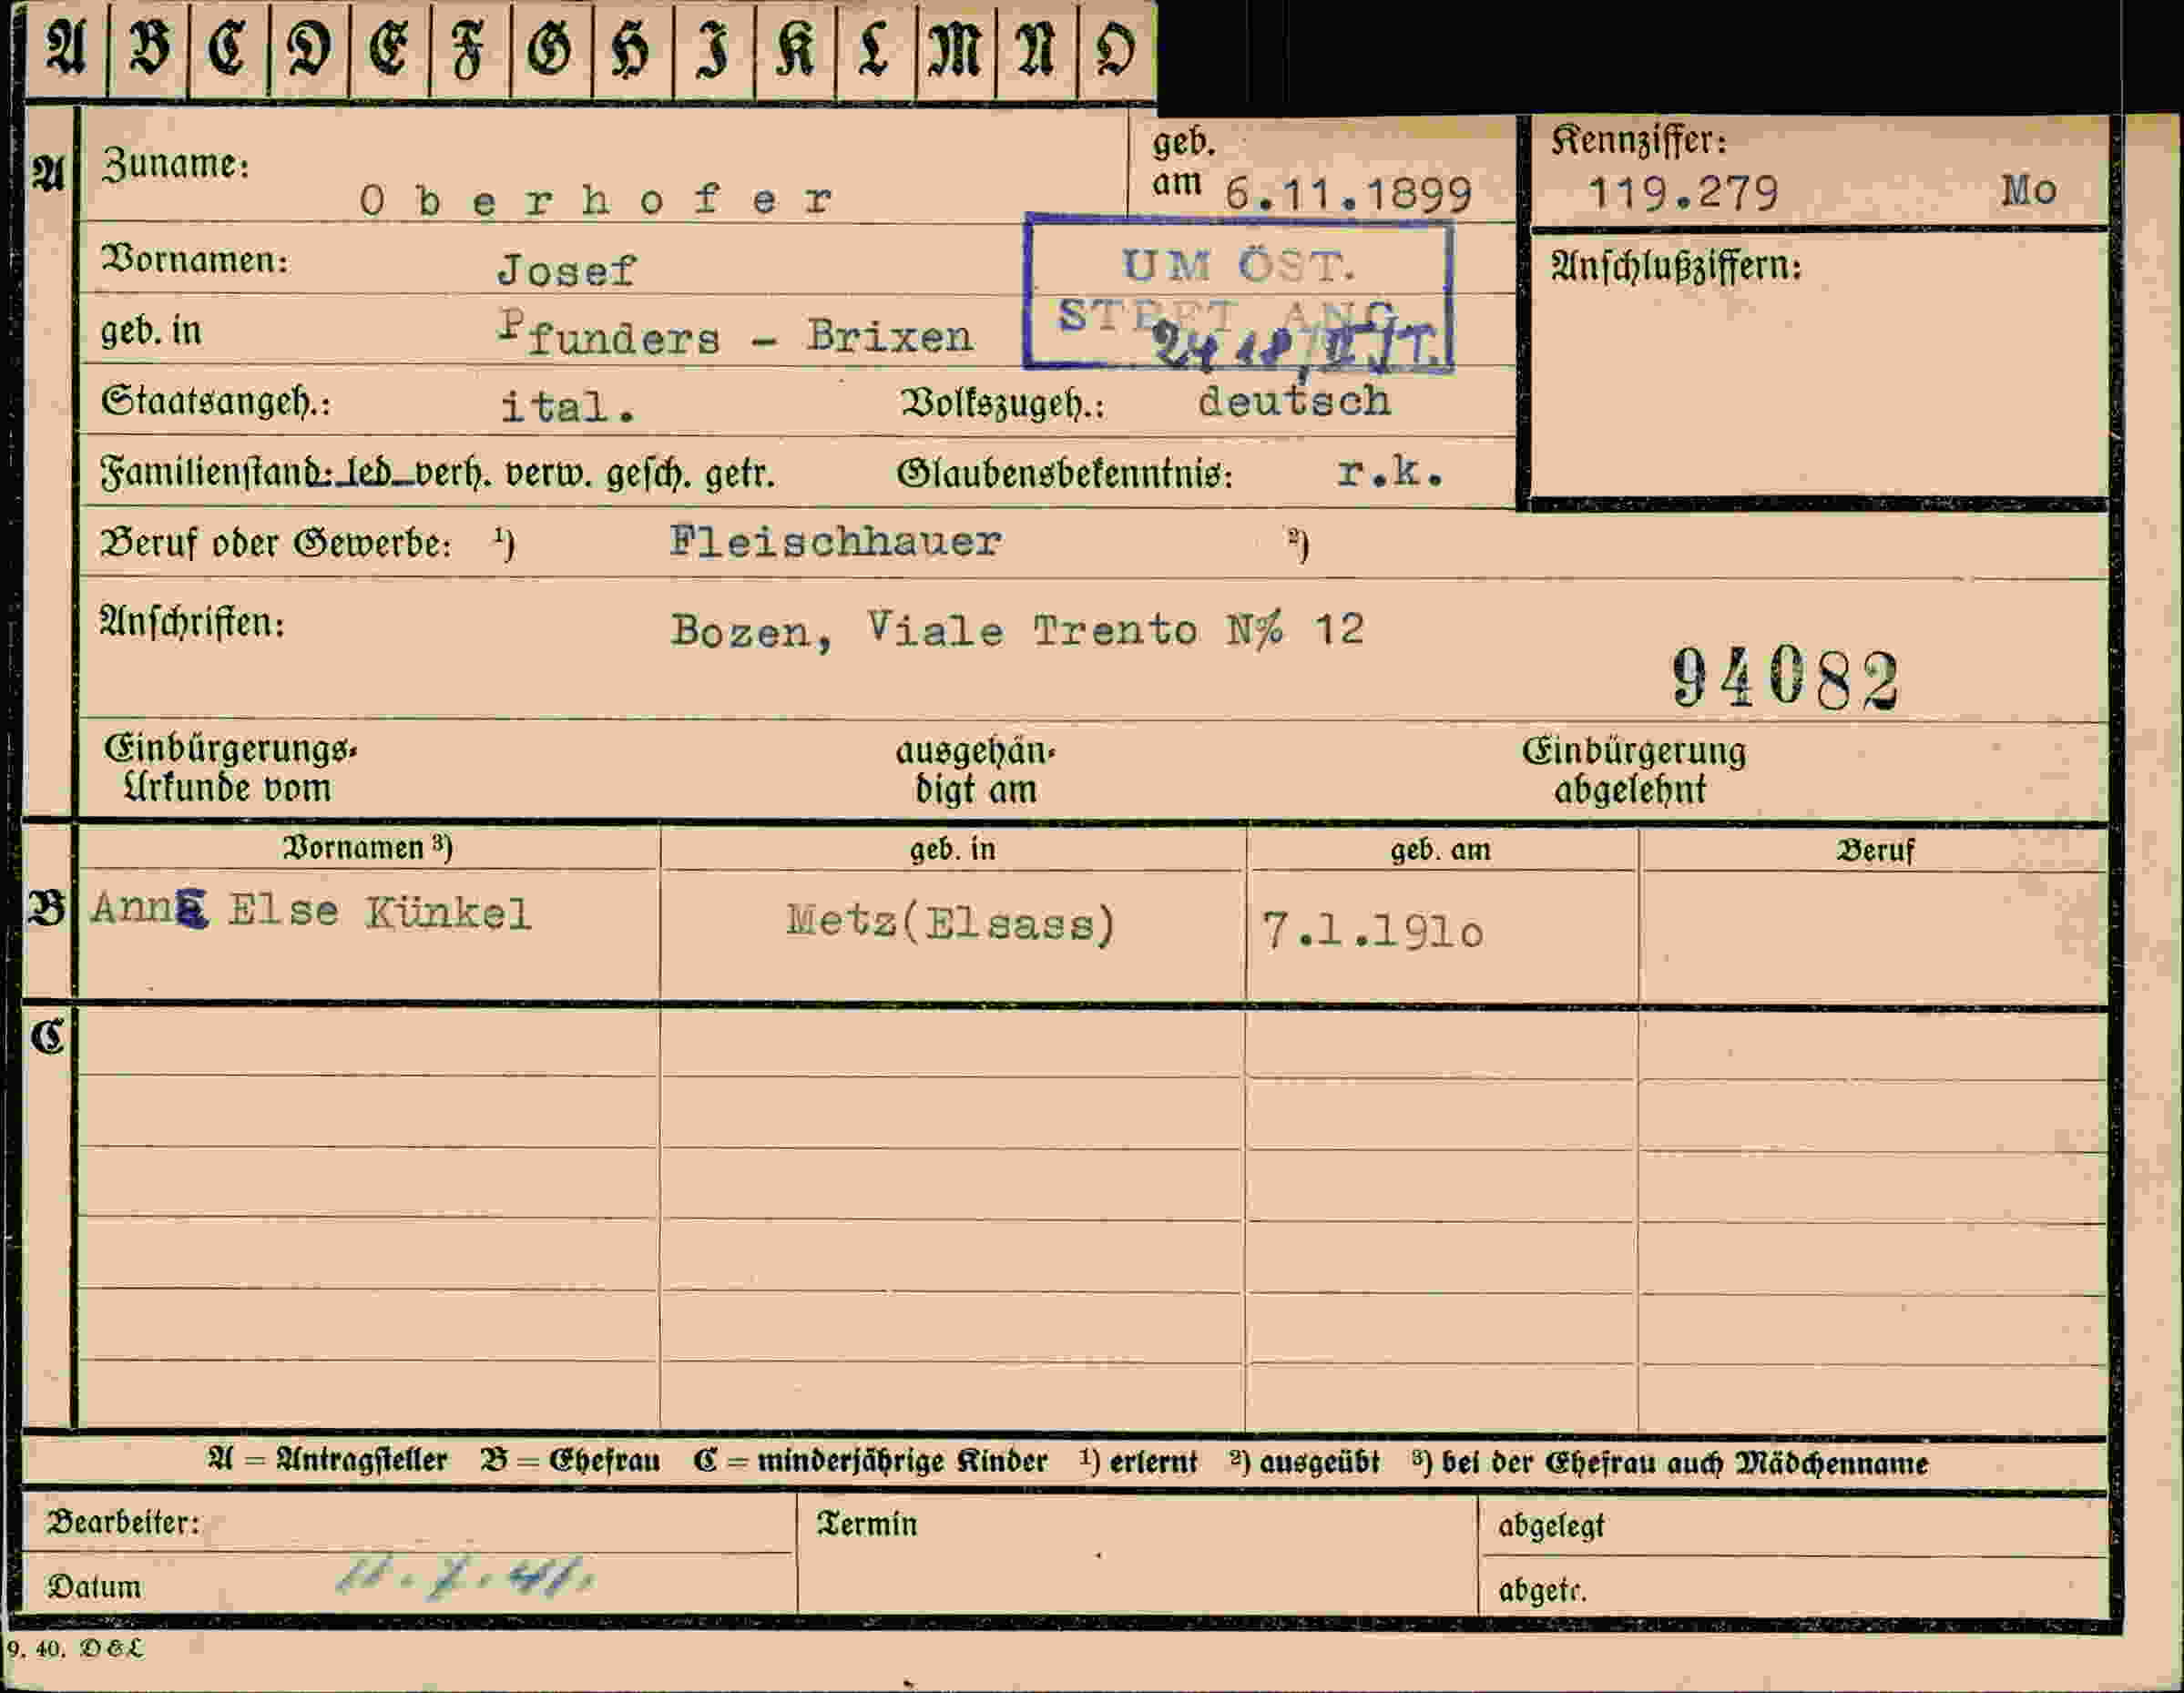 A B C D E F G H I K L M N O
A Zuname: Oberhofer geb. am 6.11.1899 Kennziffer: 119.279 Mo
Vornamen: Josef UM ÖST. Anschlußziffern:
STBFT ANG
geb. in Pfunders - Brixen
Staatsangeh.: ital. Volkszugeh.: deutsch
Familienstand: led verh. verw. gesch. getr. Glaubensbekenntnis: r.k.
Beruf oder Gewerbe: ¹) Fleischhauer ²)
Anschriften: Bozen, Viale Trento N% 12
94082
Einbürgerungs- ausgehän- Einbürgerung
Urkunde vom digt am abgelehnt
Vornamen ³) geb. in geb. am Beruf
B Anna Else Künkel Metz(Elsass) 7.1.191o
C
A = Antragsteller B = Ehefrau C = minderjährige Kinder ¹) erlernt ²) ausgeübt ³) bei der Ehefrau auch Mädchenname
Bearbeiter: Termin abgelegt
Datum 11.7.41. abgetr.
9. 40. D&L